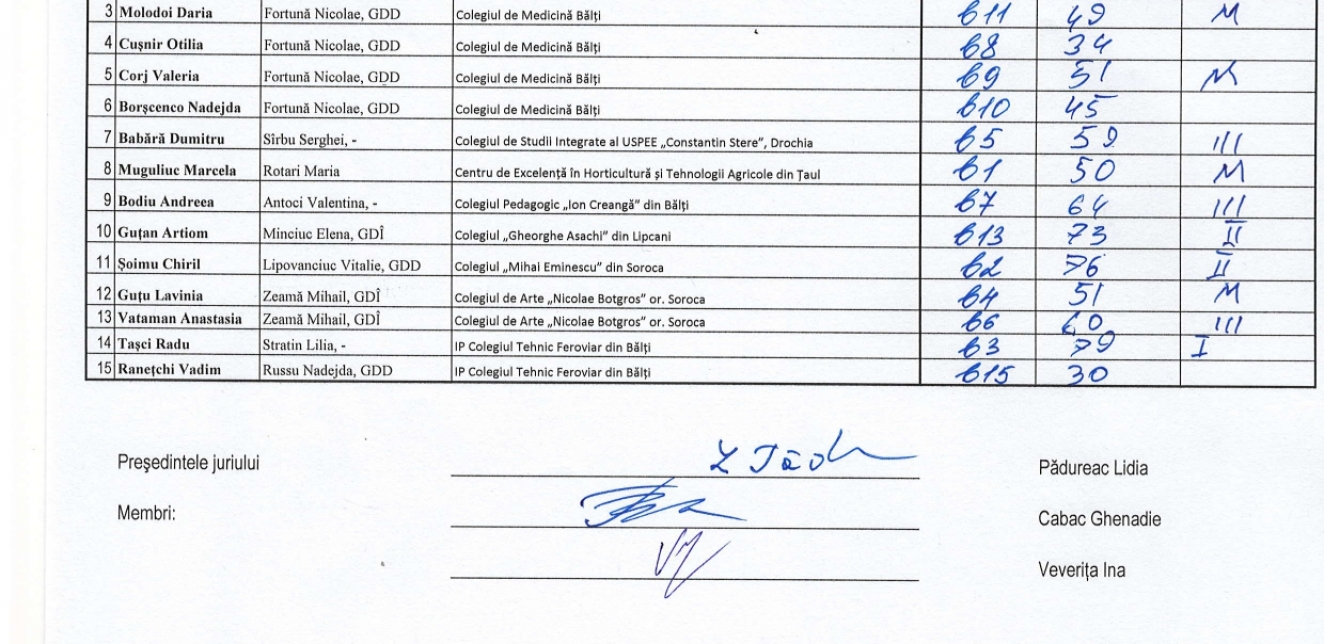 3 Molodoi Daria Fortună Nicolae, GDD Colegiul de Medicină Bălți 611 49 M
4 Cușnir Otilia Fortună Nicolae, GDD Colegiul de Medicină Bălți 68 34
5 Corj Valeria Fortună Nicolae, GDD Colegiul de Medicină Bălți 69 51 M
6 Borșcenco Nadejda Fortună Nicolae, GDD Colegiul de Medicină Bălți 610 45
7 Babără Dumitru Sîrbu Serghei, - Colegiul de Studii Integrate al USPEE „Constantin Stere”, Drochia 65 59 III
8 Muguliuc Marcela Rotari Maria Centru de Excelență în Horticultură și Tehnologii Agricole din Țaul 61 50 M
9 Bodiu Andreea Antoci Valentina, - Colegiul Pedagogic „Ion Creangă” din Bălți 67 64 III
10 Guțan Artiom Minciuc Elena, GDÎ Colegiul „Gheorghe Asachi” din Lipcani 613 73 II
11 Șoimu Chiril Lipovanciuc Vitalie, GDD Colegiul „Mihai Eminescu” din Soroca 62 76 II
12 Guțu Lavinia Zeamă Mihail, GDÎ Colegiul de Arte „Nicolae Botgros” or. Soroca 64 51 M
13 Vataman Anastasia Zeamă Mihail, GDÎ Colegiul de Arte „Nicolae Botgros” or. Soroca 66 60 III
14 Tașci Radu Stratin Lilia, - IP Colegiul Tehnic Feroviar din Bălți 63 79 I
15 Ranețchi Vadim Russu Nadejda, GDD IP Colegiul Tehnic Feroviar din Bălți 615 30
Președintele juriului Pădureac Lidia
Membri: Cabac Ghenadie
Veverița Ina